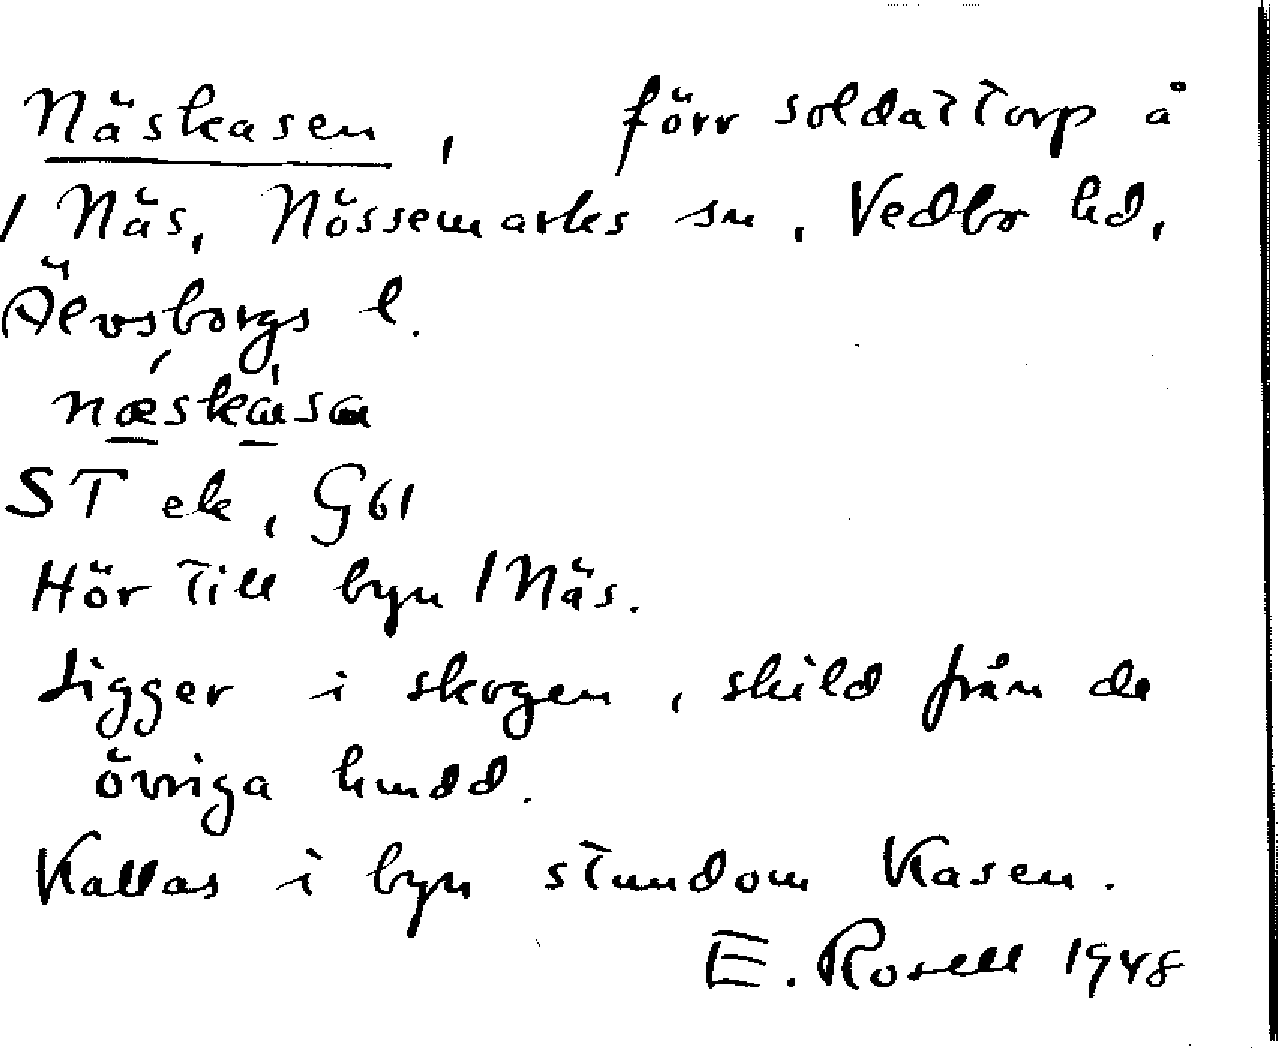 Näskasen, förr soldattorp å
1 Näs, Nössemarks sn, Vedbo hd,
Älvsborgs l.
ST ek, G61
Hör till byn 1 Näs.
Ligger i skogen, skild från de
övriga hmdd.
Kallas i byn stundom Kasen.
E. Rosell 1948